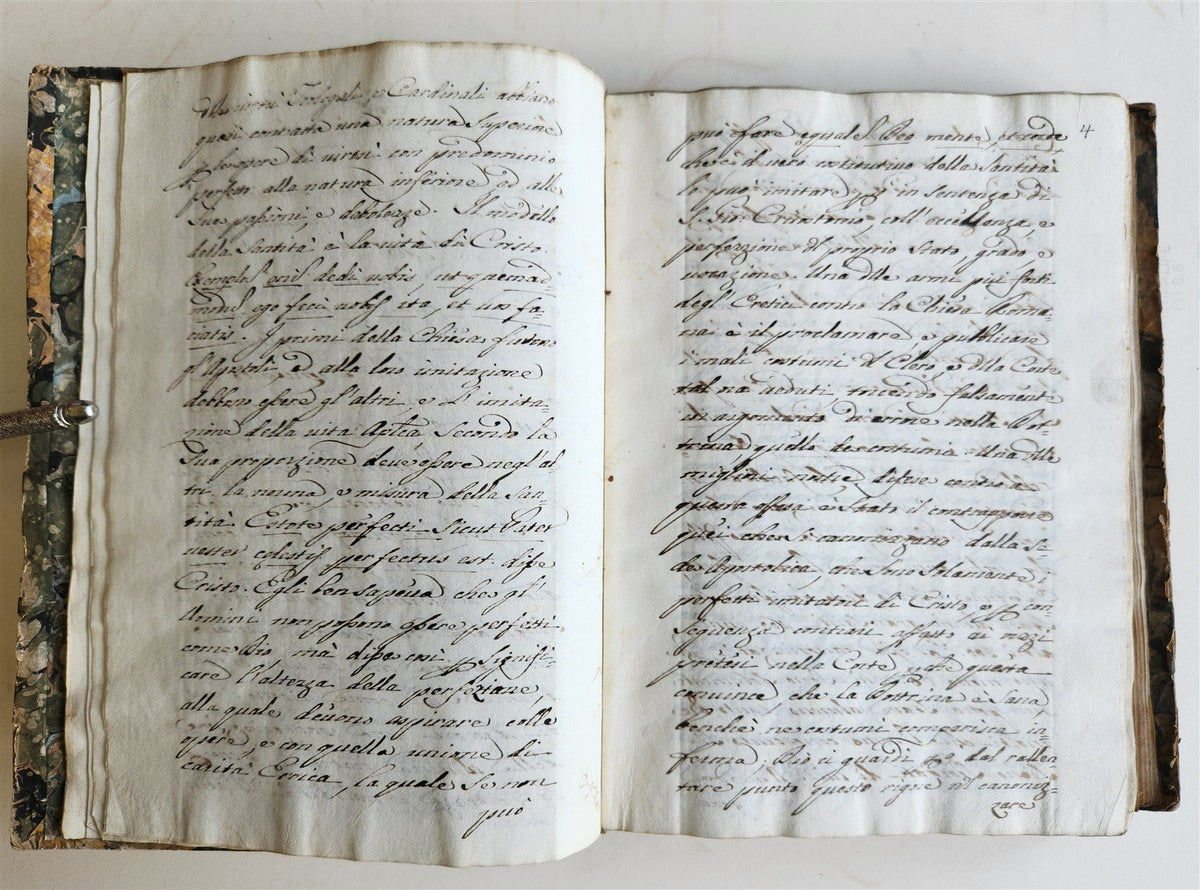 Teologali, e Cardinali abbiano
quasi contratta una natura superiore
di virtù con predominio
perfetti alla natura inferiore ed alle
sue passioni, e debolezze. Il modello
della Santità è la vita di Cristo
Exempl. enĩ dedi vobis, ut quemad=
mod. ego feci vobis ita, et vos fa=
ciatis. I primi della Chiesa furono
gl'Apostoli, e alla loro imitazione
debbono essere gl'altri, e l'imita=
zione della vita Aplca secondo la
sua proporzione deve essere negl'al
tri la norma, e misura della San=
tità. Estote perfecti sicut Pater
vester celestis perfectus est. disse
Cristo. Egli ben sapeva che gl'
Uomini non possono essere perfetti
come Dio mà disse così p signifi=
care l'altezza della perfezione
alla quale devono aspirare colle
opere, e con quella unione di
carità Eroica, la quale se non
può
4
può essere eguale à Dio mente,
che è il vero costitutivo della Santità
lo può imitare in sentenza di
S. Pio Creatorio, coll'eccellenza, e
perfezzione del proprio stato, grado e
vocazione. Una delle armi più forti
degl'Eretici contro la Chiesa Roma=
na è il proclamare, e pubblicare
i mali costumi del Clero, e della Corte
veduti, falsamente
in argomento di errore nella Dot=
trina quello de costumi. Una delle
migliori difese contro a
questa offesa è stato il contrapporre
quei che si canonizzano dalla Se=
de Apostolica, che sono solamente i
perfetti imitatori di Cristo, e p con
seguenza contrari affatto ai vizi
pretesi nella Corte, che questa
convince, che la Dottrina è sana,
benchè ne costumi comparisca in=
ferma; Dio ci guardi poi dal rallen
tare punto questo rigore nel canoniz=
zare